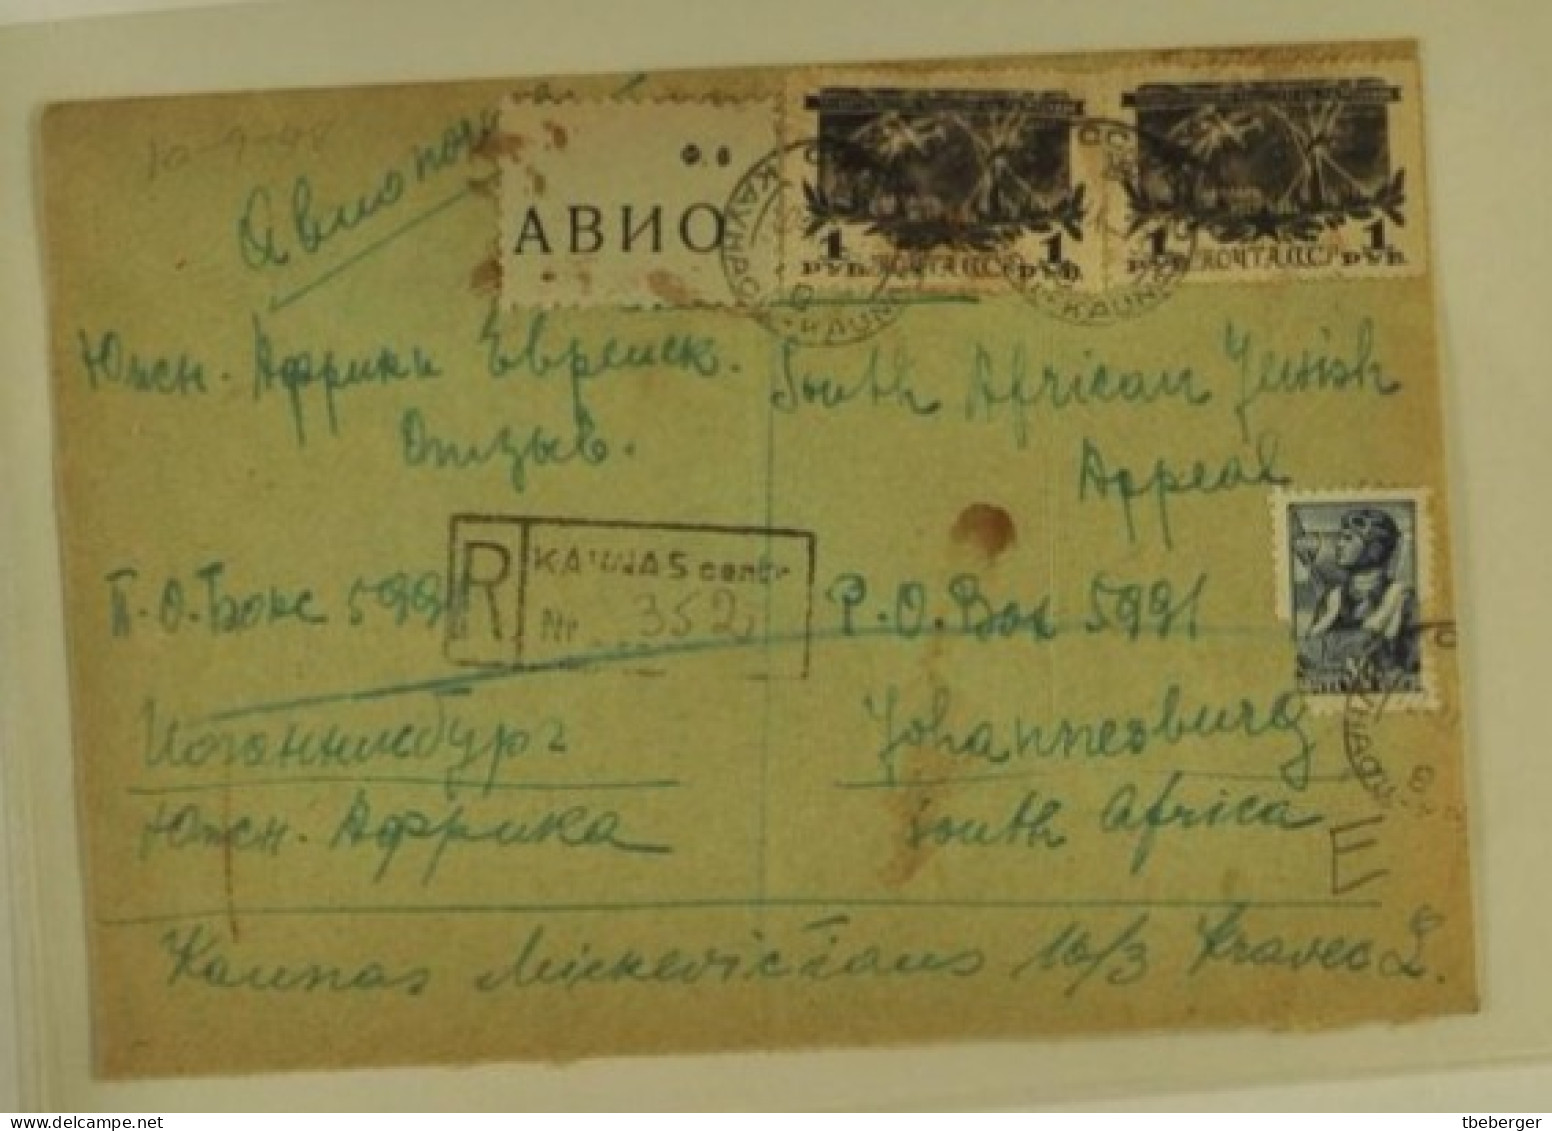 10-9-48
Авиопочта
Ф. 8
АВИО
1 РУБ. ПОЧТА СССР 1 РУБ.
1 РУБ. ПОЧТА СССР 1 РУБ.
КАУНАС KAUNAS
Южн. Африкн Еврейск.
Отзыв.
South African Jewish
Appeal
R KAUNAS centr.
Nr 352
П.О. Бокс 5991
P.O. Box 5991
Иоганнисбург
Южн. Африка
Johannesburg
South Africa
Kaunas Mickevičiaus 16/3 Kravec L.
tbeberger